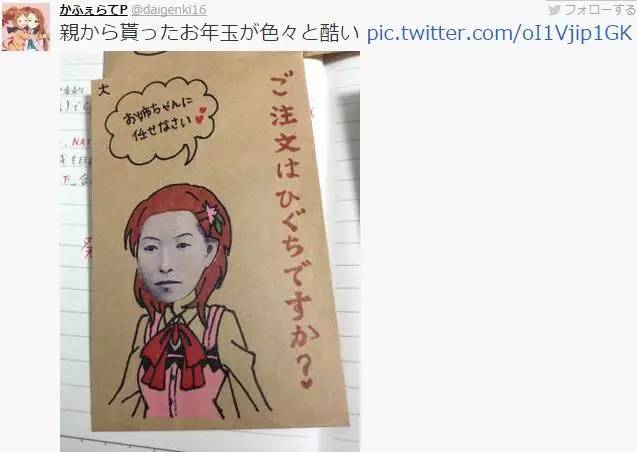 かふぇらてP @daigenki16
フォローする
親から貰ったお年玉が色々と酷い pic.twitter.com/oI1Vjip1GK
大
お姉ちゃんに
任せなさい
ご注文はひぐちですか?